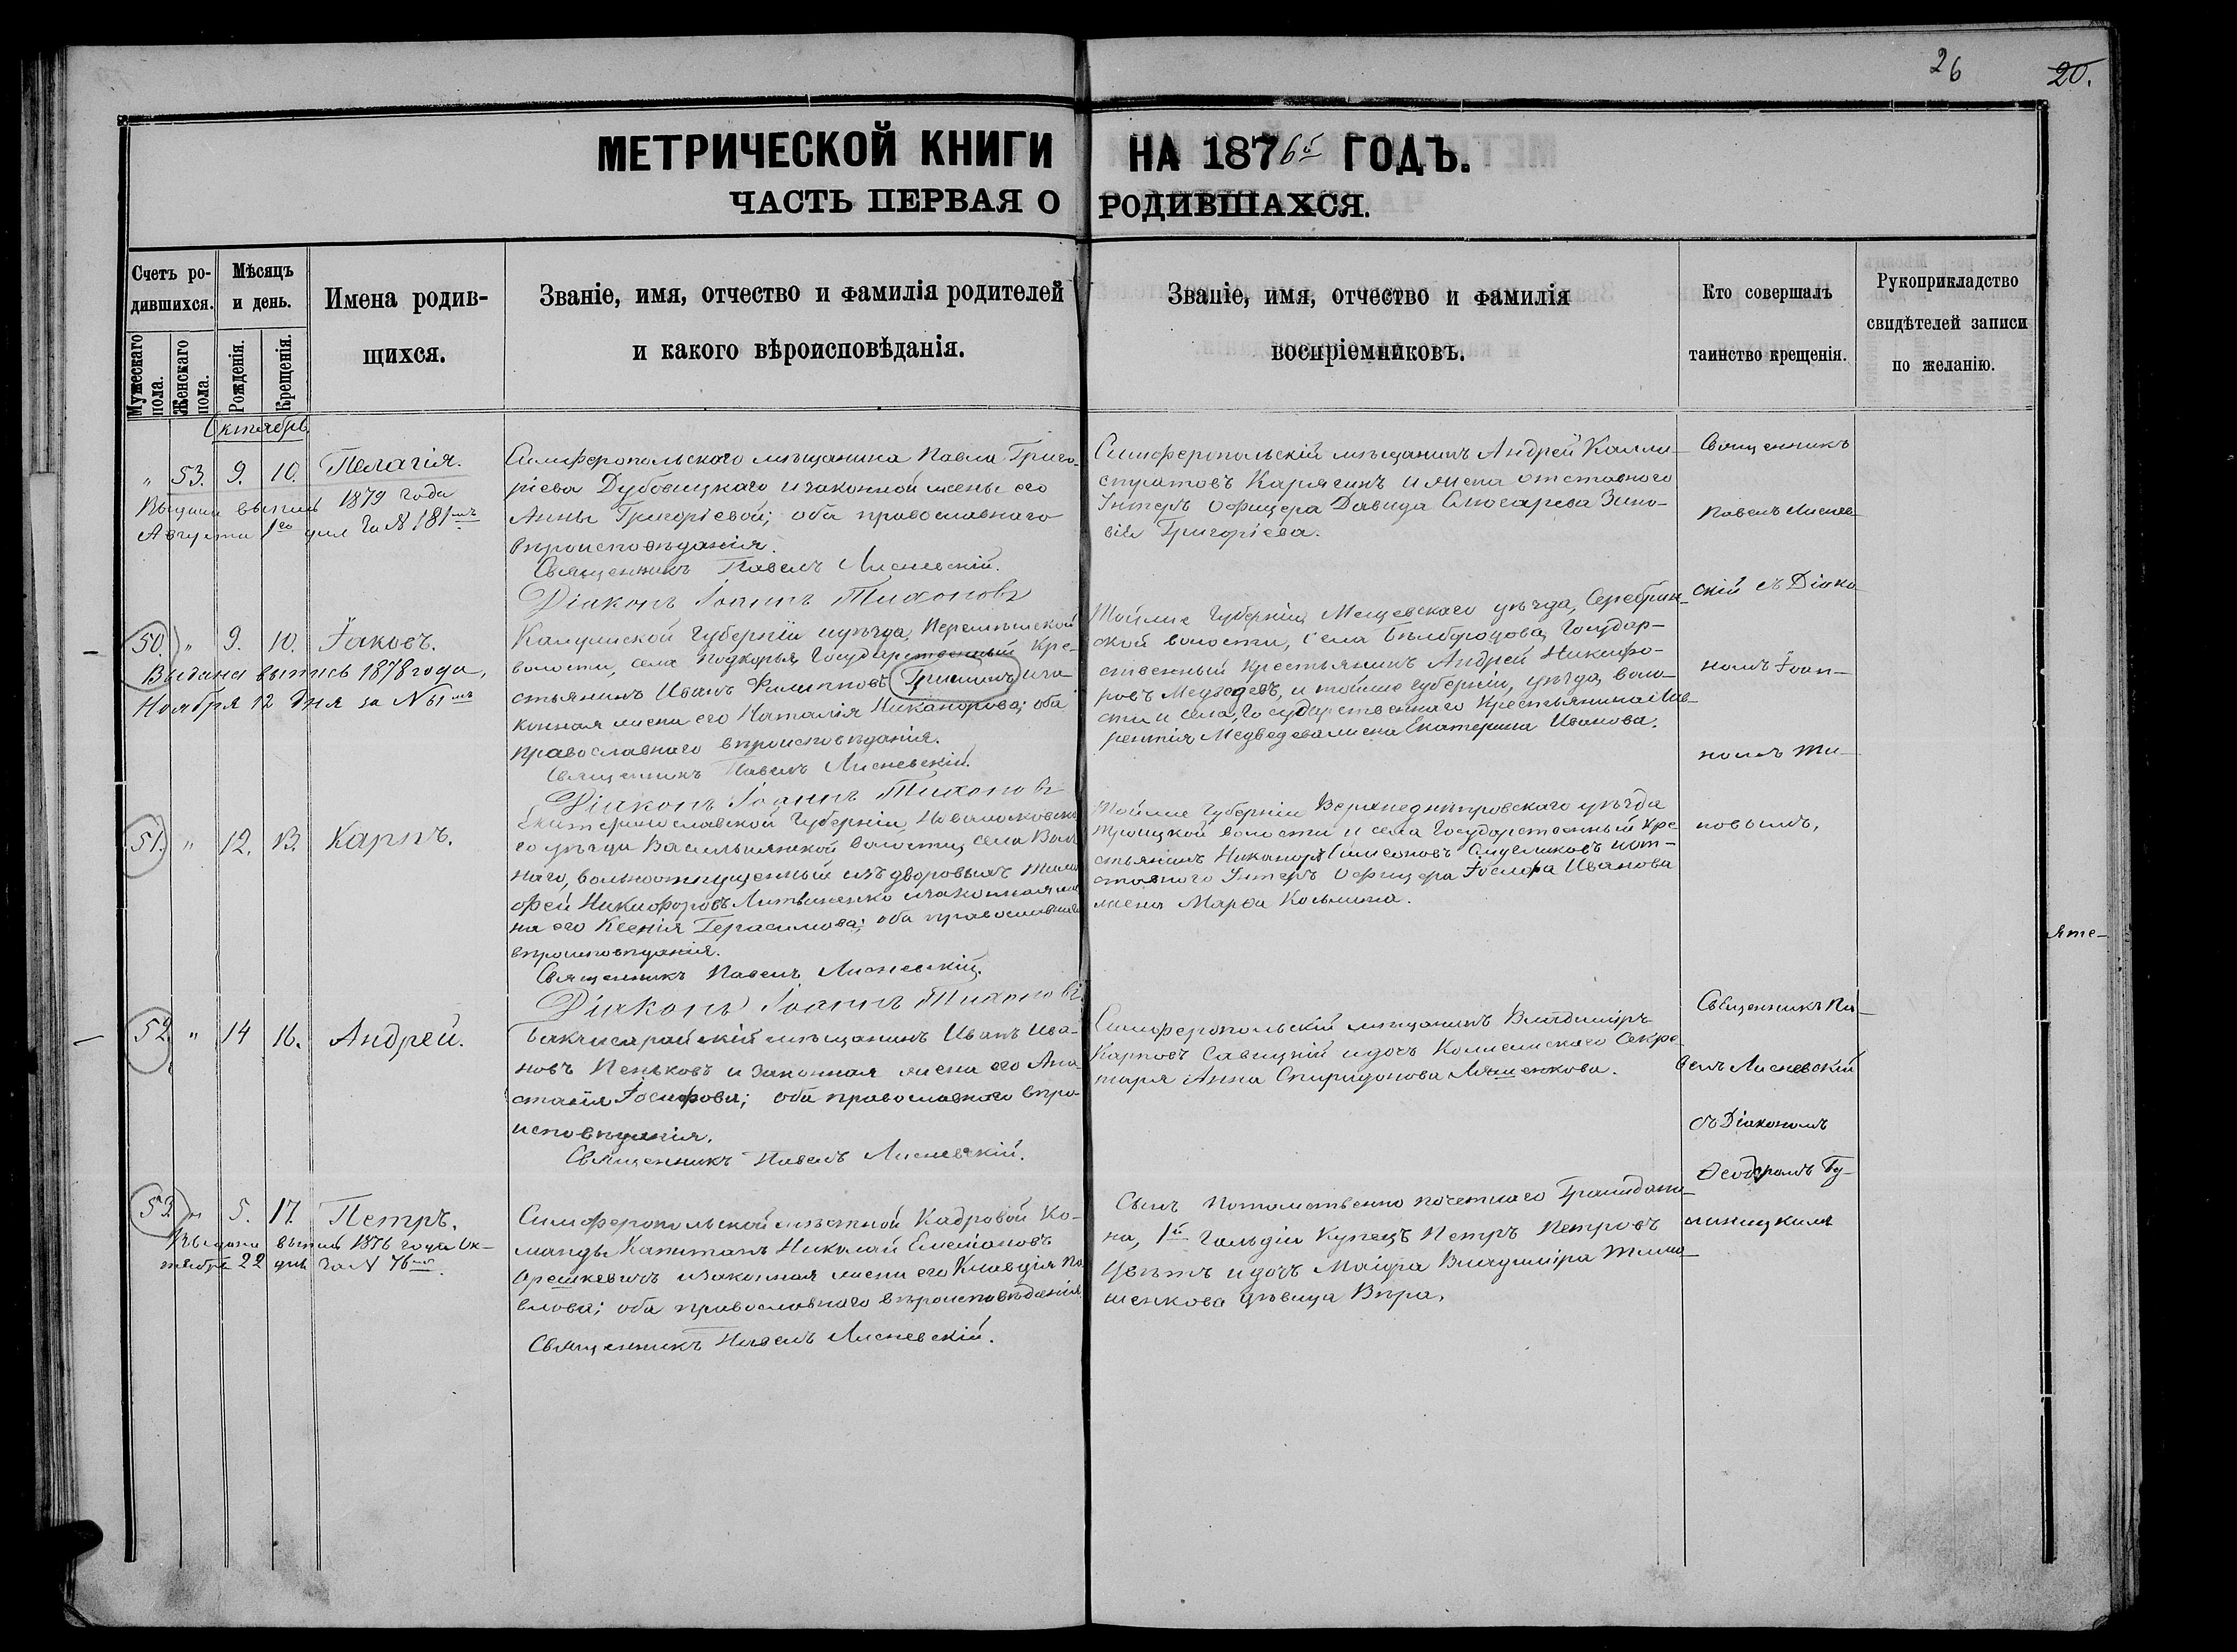 26
20.
МЕТРИЧЕСКОЙ КНИГИ НА 1876й ГОДЪ.
ЧАСТЬ ПЕРВАЯ О РОДИВШАХСЯ.
Счетъ ро-
дившихся.
Мужескаго пола.
Женскаго пола.
Мѣсяцъ
и день.
Рожденія.
Крещенія.
Имена родив-
щихся.
Званіе, имя, отчество и фамилія родителей
и какого вѣроисповѣданія.
Званіе, имя, отчество и фамилія
воспріемниковъ.
Кто совершалъ
таинство крещенія.
Рукоприкладство
свидѣтелей записи
по желанію.
Октябрь
" 53. 9. 10. Пелагія.
1879 года
Августа 1го дня за N 181мъ
Симферопольскаго мѣщанина Павла Григо-
ріева Дубовицкаго и законной жены его
Анны Григоріевой; оба православнаго
вѣроисповѣданія.
Священникъ Павелъ Лисневскій.
Діаконъ Іоаннъ Тихоновъ
Симферопольскій мѣщанинъ Андрей Калли-
стратовъ Карягинъ и жена отставного
Унтеръ Офицера Давида Слюсарева Зино-
вія Григоріева.
Священникъ
Павелъ Лиснев-
скій съ Діако-
номъ Іоан-
номъ Ти-
хоновымъ,
50. " 9. 10. Іаковъ.
Выдана выпись 1878 года,
Ноября 12 дня за N 61мъ
Калужской Губерніи и уѣзда, Перемышльской
волости, села Подкорья, Государственный Кре-
стьянинъ Иванъ Филипповъ Гришинъ и за-
конная жена его Наталія Никанорова; оба
православнаго вѣроисповѣданія.
Священникъ Павелъ Лисневскій.
Діаконъ Іоаннъ Тихоновъ
Тойже Губерніи Мещевскаго уѣзда, Серебрян-
ской волости, села Государ-
ственный крестьянинъ Андрей Никифо-
ровъ Медведевъ, и тойже губерніи, уѣзда, воло-
сти и села, Государственнаго Крестьянина Лав-
рентія Медведева жена Екатерина Иванова.
51. " 12. 13. Карпъ.
Екатеринославской Губерніи, Новомосковска-
го уѣзда Васильковской волости, села Воль-
наго, вольноотпущенный изъ дворовыхъ Тимо-
фей Никифоровъ Литвиненко и законная же-
на его Ксенія Герасимова; оба православнаго
вѣроисповѣданія.
Священникъ Павелъ Лисневскій.
Діаконъ Іоаннъ Тихоновъ.
Тойже Губерніи Верхнеднѣпровскаго уѣзда
Троицкой волости и села Государственный Кре-
стьянинъ Никаноръ Симеоновъ и от-
ставного Унтеръ Офицера Іосифа Иванова
жена Марѳа Косьмина.
яте-
52. " 14 16. Андрей.
Бакчисарайскій мѣщанинъ Иванъ Ива-
новъ Пеньковъ и законная жена его Ана-
стасія Іосифова; оба православнаго вѣро-
исповѣданія.
Священникъ Павелъ Лисневскій.
Симферопольскій мѣщанинъ Владиміръ
Карповъ Савицкій и дочь Колежскаго Секре-
таря Анна Спиридонова Ляшенкова.
Священникъ Па-
велъ Лисневскій
съ Діакономъ
Ѳеодоромъ Бу-
53. " 5. 17. Петръ.
Выдана выпись 1876 года Ок-
тября 22 дня за N 76мъ.
Симферопольской мѣстной Кадровой Ко-
манды Капитанъ Николай Емеліановъ
Орешкевичъ и законная жена его Клавдія Па-
влова; оба православнаго вѣроисповѣданія.
Священникъ Павелъ Лисневскій.
Сынъ Потомственно почетнаго Граждани-
на, 1й Гильдіи Купецъ Петръ Петровъ
Цвѣтъ и дочь Маіора Владиміра Тимо-
шенкова дѣвица Вѣра.